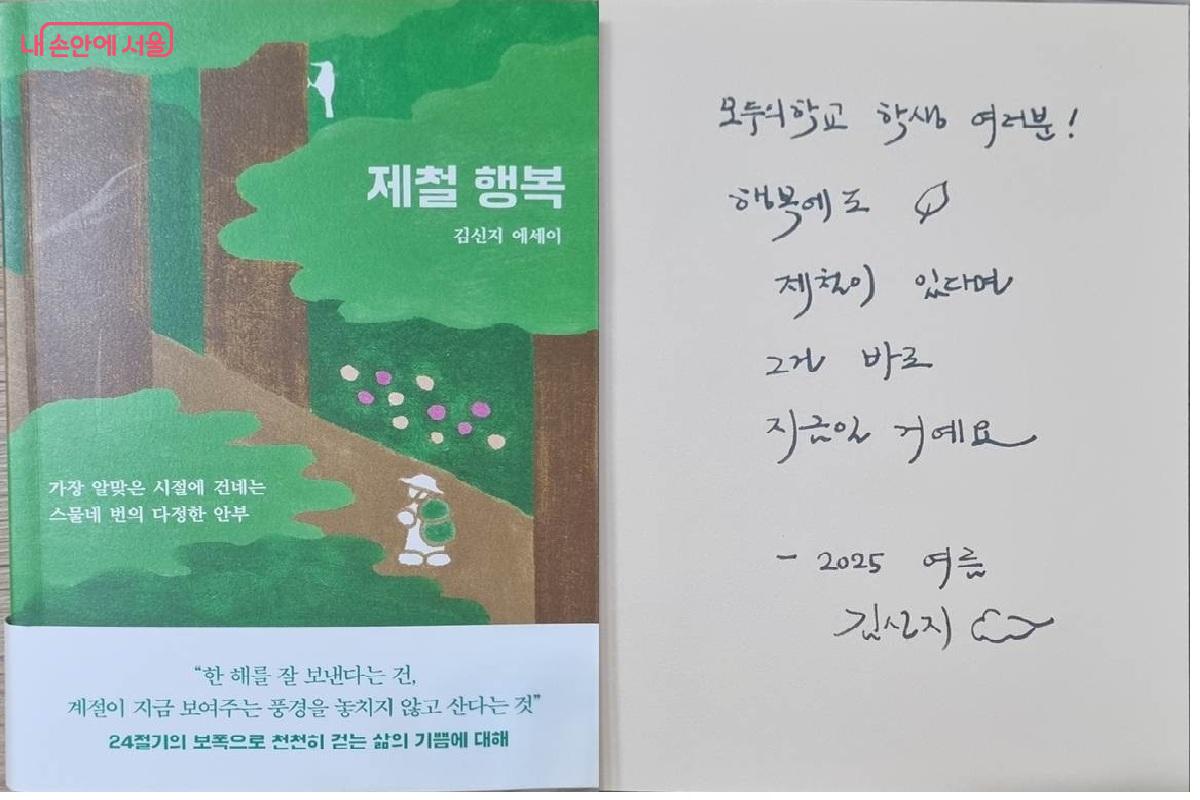 내 손안에 서울
제철 행복
김신지 에세이
가장 알맞은 시절에 건네는
스물네 번의 다정한 안부
“한 해를 잘 보낸다는 건,
계절이 지금 보여주는 풍경을 놓치지 않고 산다는 것”
24절기의 보폭으로 천천히 걷는 삶의 기쁨에 대해
모두의학교 학생 여러분!
행복에도
제철이 있다면
그건 바로
지금일 거예요
- 2025 여름
김신지